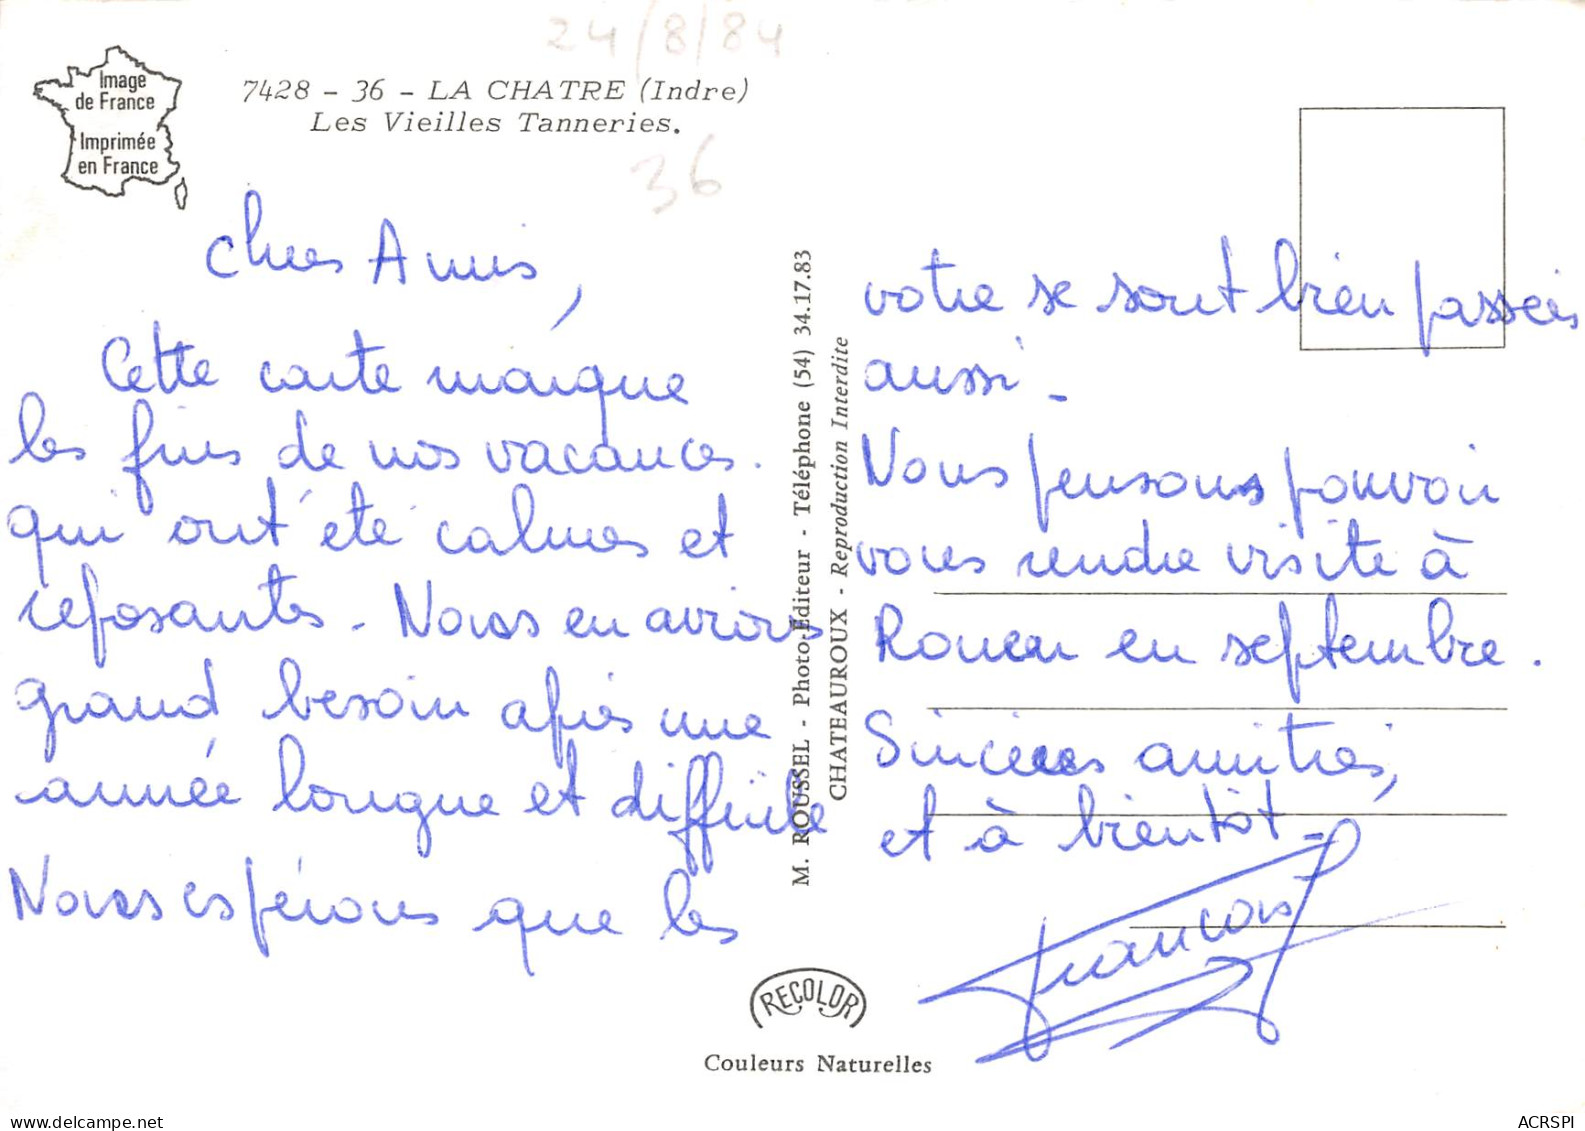 24/8/84
Image
de France
Imprimée
en France
7428 - 36 - LA CHATRE (Indre)
Les Vieilles Tanneries.
36
Chers Amis,
Cette carte marque
les fins de nos vacances.
qui ont été calmes et
reposantes. Nous en avions
grand besoin après une
année longue et difficile
Nous espérons que les
M. ROUSSEL - Photo-Editeur - Téléphone (54) 34.17.83
CHATEAUROUX - Reproduction Interdite
votre se sont bien passées
aussi.
Nous pensons pouvoir
vous rendre visite à
Rouen en septembre.
Sincères amitiés,
et à bientôt -
François
RECOLOR
Couleurs Naturelles
www.delcampe.net
ACRSPI